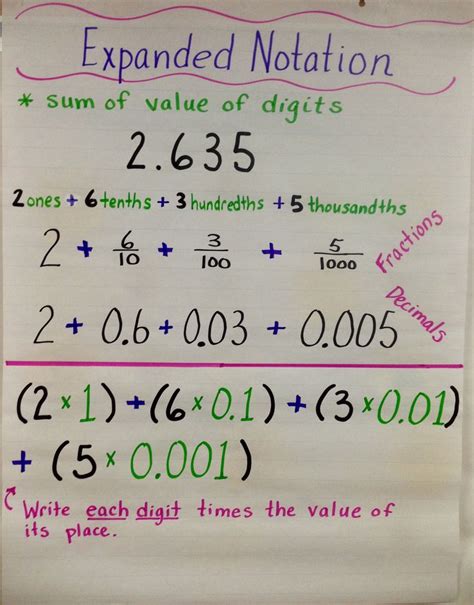 Expanded Notation
* sum of value of digits
2.635
2 ones + 6 tenths + 3 hundredths + 5 thousandths
2 + 6/10 + 3/100 + 5/1000 Fractions
2 + 0.6 + 0.03 + 0.005 Decimals
(2 × 1) + (6 × 0.1) + (3 × 0.01)
+ (5 × 0.001)
Write each digit times the value of
its place.